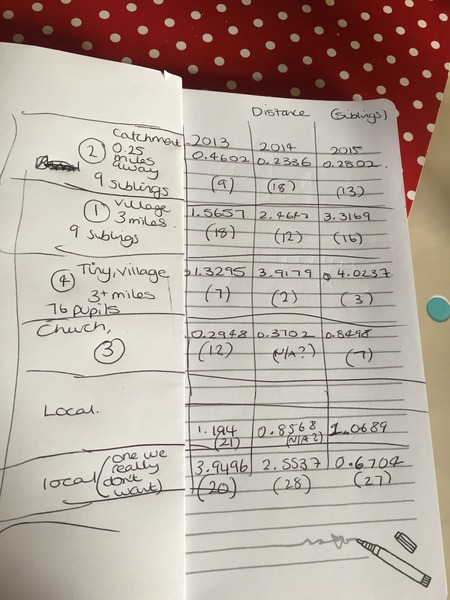 Distance (siblings)
Catchment 2013 2014 2015
② 0.25 miles away 0.4602 0.2336 0.2802
9 siblings (9) (18) (13)
① Village 3 miles. 1.5657 3.3169
9 siblings (18) (12) (16)
④ Tiny, village 1.3295 3.9179 4.0237
3+ miles (7) (2) (3)
76 pupils
Church, 0.2948 0.3702 0.8498
③ (12) (N/A?) (7)
Local. 1.194 0.8568 1.0689
(21) (N/A?)
local (one we really don't want) 3.9496 2.5537 0.6704
(20) (28) (27)